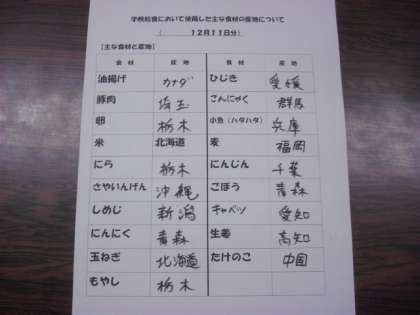 学校給食において使用した主な食材の産地について
( 12月11日分)
【主な食材と産地】
食材 産地 食材 産地
油揚げ カナダ ひじき 愛媛
豚肉 埼玉 こんにゃく 群馬
卵 栃木 小魚(ハタハタ) 兵庫
米 北海道 麦 福岡
にら 栃木 にんじん 千葉
さやいんげん 沖縄 ごぼう 青森
しめじ 新潟 キャベツ 愛知
にんにく 青森 生姜 高知
玉ねぎ 北海道 たけのこ 中国
もやし 栃木